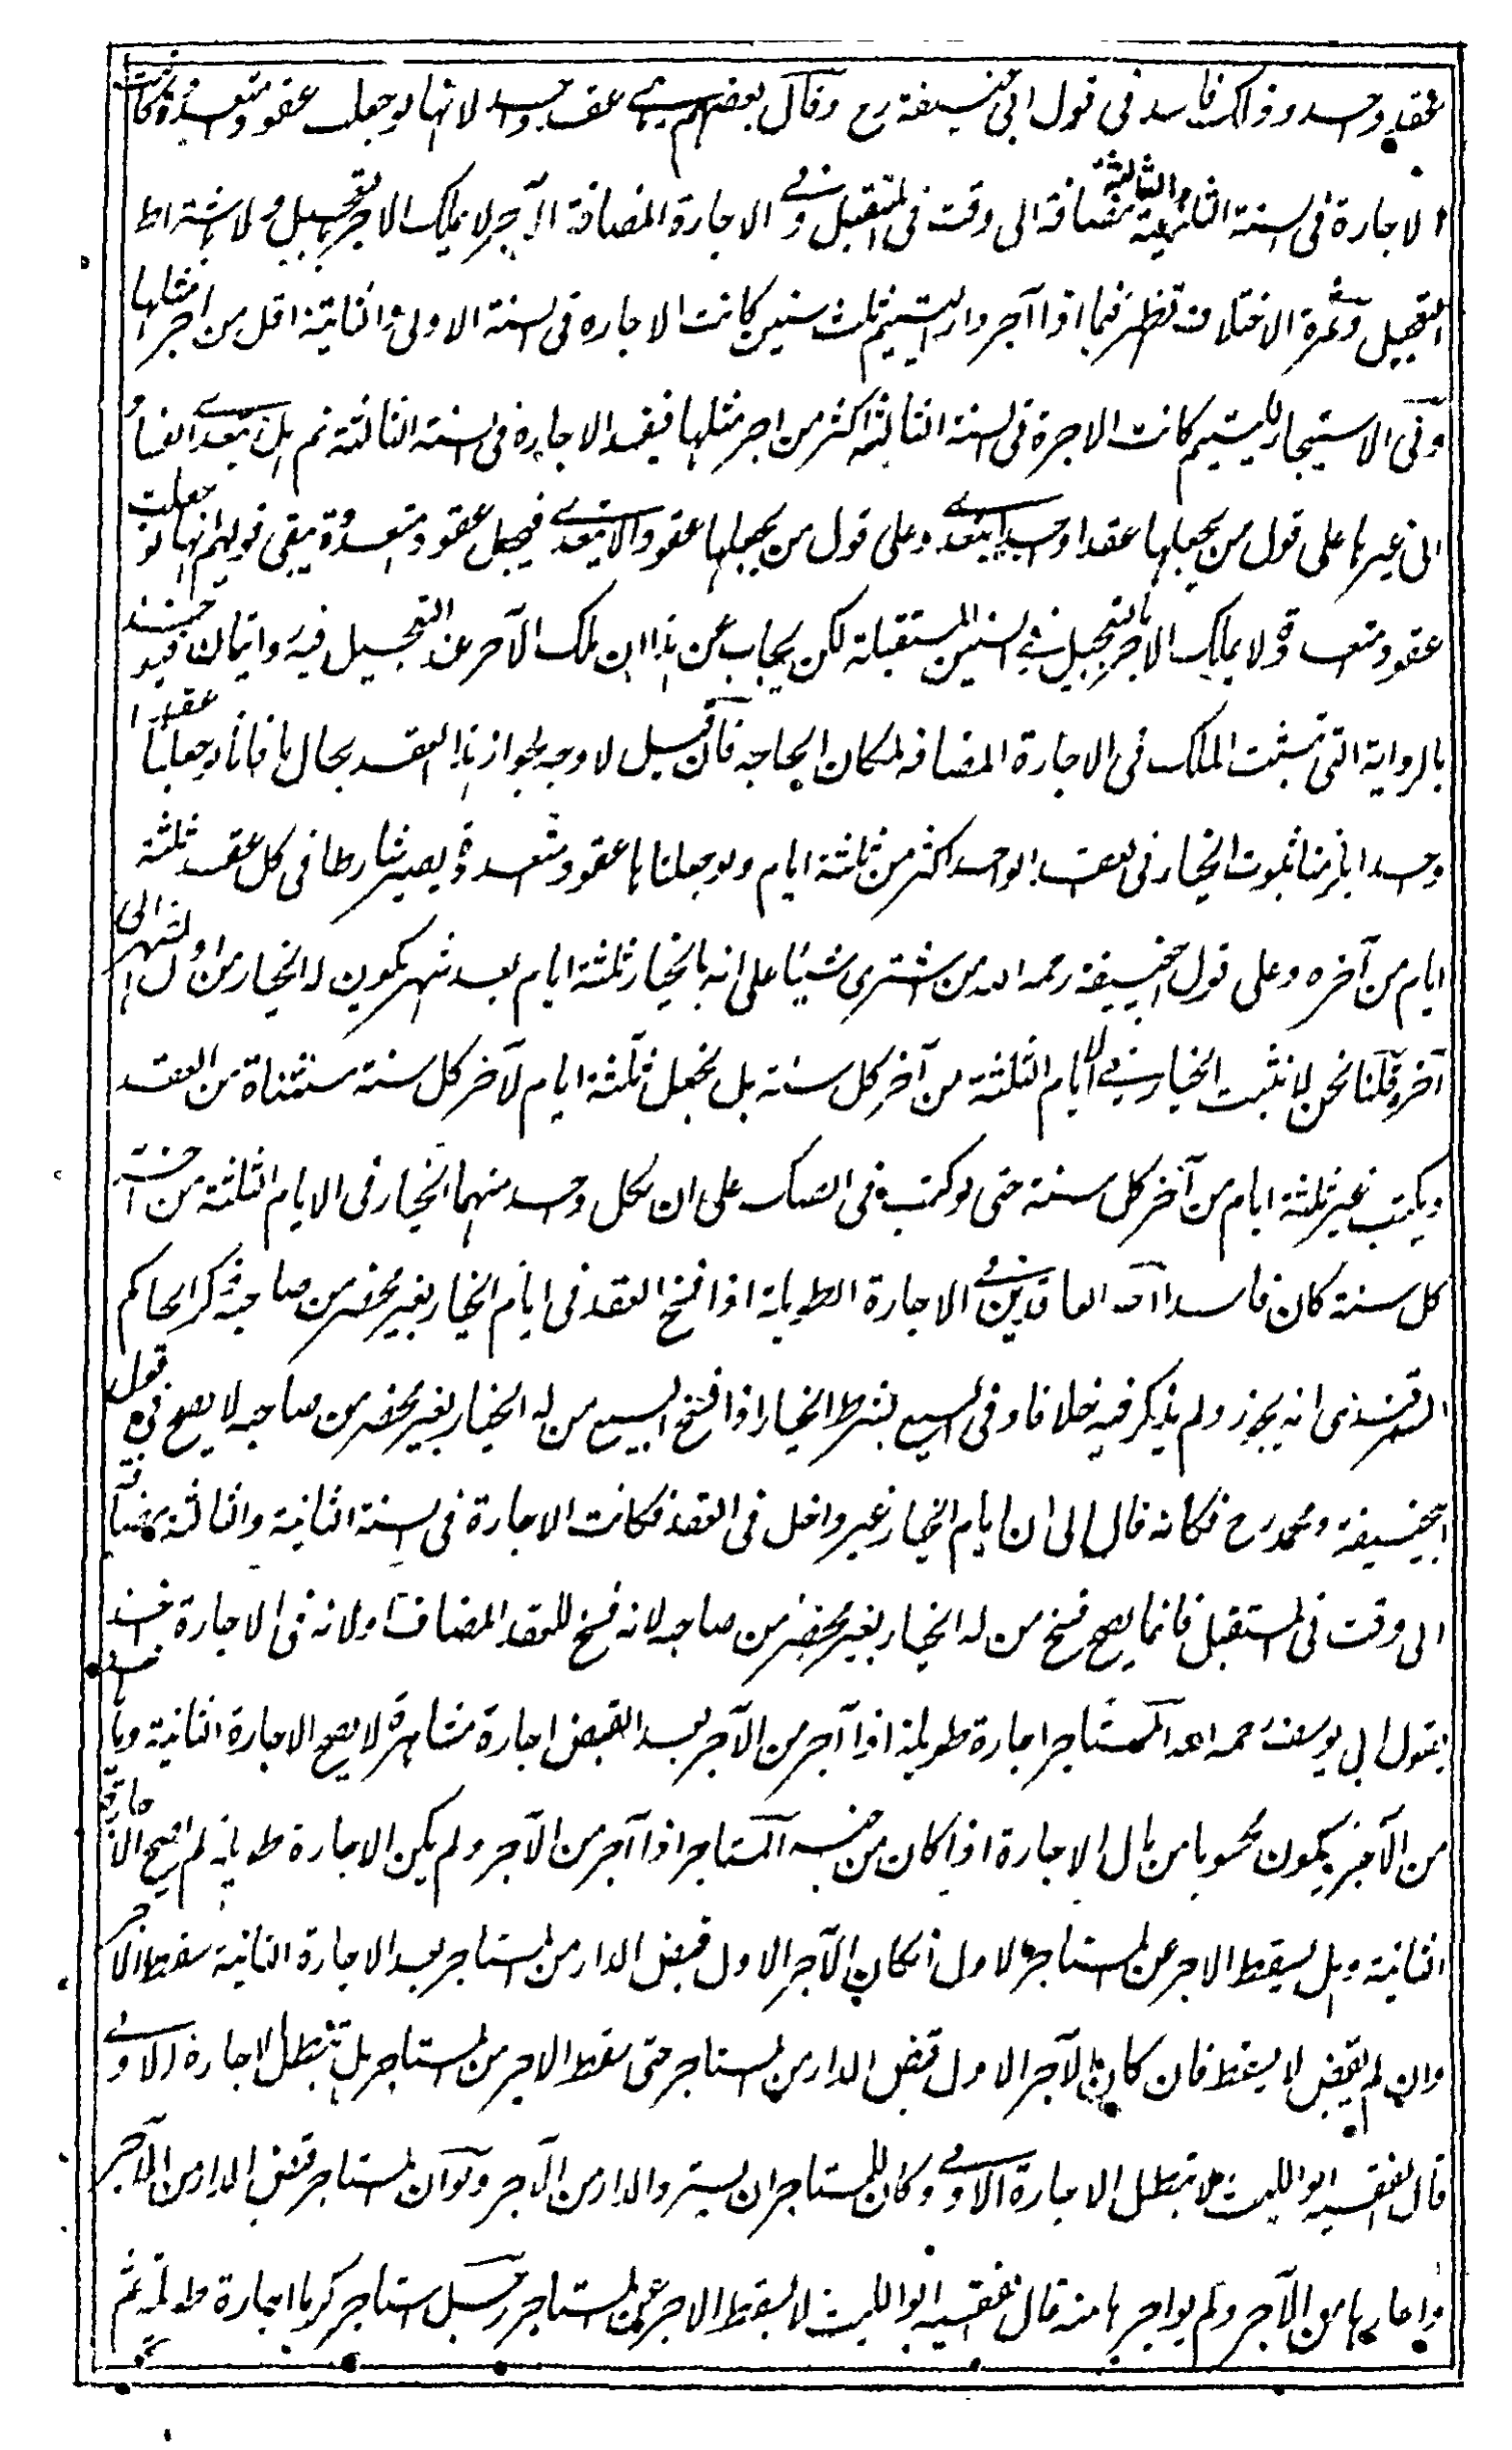 عقد واحد وذلك فاسد فى قول ابى حنيفة رح وقال بعضهم هى عقد واحد لانها لو جعلت عقودا متعددة كانت
الاجارة فى السنة الثانية والثالثة مضافة الى وقت فى المستقبل وفى الاجارة المضافة الآجر لا يملك الاجر بالتعجيل ولا باشتراط
التعجيل وثمرة الاختلاف تظهر فيما اذا آجر دار اليتيم ثلث سنين كانت الاجارة فى السنة الاولى والثانية اقل من اجر مثلها
وفى الاستيجار لليتيم كانت الاجرة فى السنة الثالثة اكثر من اجر مثلها فيفسد الاجارة فى السنة الثالثة ثم هل يتعدى الفساد
الى غيرها على قول من يجعلها عقدا واحدا يتعدى وعلى قول من يجعلها عقودا لا يتعدى فيجعل عقود متعددة يبقى قولهم انها لو جعلت
عقود متعددة ولا يملك الاجر بالتعجيل فى السنين المستقبلة لكن يجاب عن هذا ان ملك الآجر عند التعجيل فيه روايتان فيؤخذ
بالرواية التى تثبت الملك فى الاجارة المضافة لمكان الحاجة فان قيل لا وجه لجواز هذا العقد بحال ما فانا لو جعلناها عقدا
واحدا يلزمنا ثبوت الخيار فى العقد الواحد اكثر من ثلثة ايام ولو جعلناها عقود متعددة يصير شارطا فى كل عقد ثلثة
ايام من آخره وعلى قول ابيحنيفة رحمه الله من اشترى شيئا على انه بالخيار ثلثة ايام بعد شهر يكون له الخيار من اول الشهر الى
آخره قلنا نحن لا نثبت الخيار فى الايام الثلثة من آخر كل سنة بل نجعل ثلثة ايام لآخر كل سنة مستثناة من العقد
ويكتب غير ثلثة ايام من آخر كل سنة حتى لو كتب فى الصك على ان لكل واحد منهما الخيار فى الايام الثلثة من آخر
كل سنة كان فاسدا احد العاقدين فى الاجارة الطويلة اذا فسخ العقد فى ايام الخيار بغير محضر من صاحبه ذكر الحاكم
السمرقندى انه يجوز ولم يذكر فيه خلافا وفى البيع بشرط الخيار اذا فسخ البيع من له الخيار بغير محضر من صاحبه لا يصح فى قول
ابيحنيفة ومحمد رح فكانه مال الى ان ايام الخيار غير داخل فى العقد فكانت الاجارة فى السنة الثانية والثالثة مضافة
الى وقت فى المستقبل فانما يصح فسخ من له الخيار بغير محضر من صاحبه لانه فسخ للعقد المضاف اولانه فى الاجارة اخذ
بقول ابى يوسف رحمه الله المستاجر اجارة طويلة اذا آجر من الآجر بعد القبض اجارة مشاهرة لا يصح الاجارة الثانية وما
من الآجر يكون محسوبا من مال الاجارة اذا كان من جنسه المستاجر اذا آجر من الآجر ولم يكن الاجارة طويلة لم تصح الاجارة
الثانية وهل يسقط الاجر عن المستاجر الاول ان كان الآجر الاول قبض الدار من المستاجر بعد الاجارة الثانية سقط الاجر
وان لم يقبض لا يسقط فان كان الآجر الاول قبض الدار من المستاجر حتى سقط الاجر من المستاجر هل تبطل الاجارة الاولى
قال الفقيه ابو الليث لا تبطل الاجارة الاولى وكان للمستاجر ان يسترد الدار من الآجر ولو ان المستاجر قبض الدار من الآجر
واعارها من الآجر ولم يواجرها منه قال الفقيه ابو الليث لا يسقط الاجر عن المستاجر رجل استاجر كرما اجارة طويلة ثم